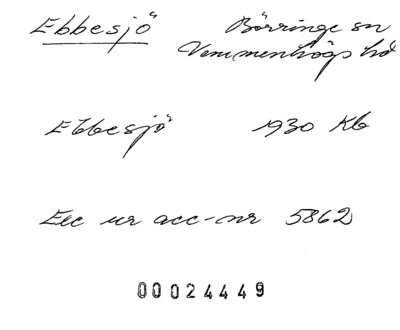 Ebbesjö Börringe sn
Vemmenhögs hd
Ebbesjö 1930 Kb
Exc ur acc-nr 5862
00024449